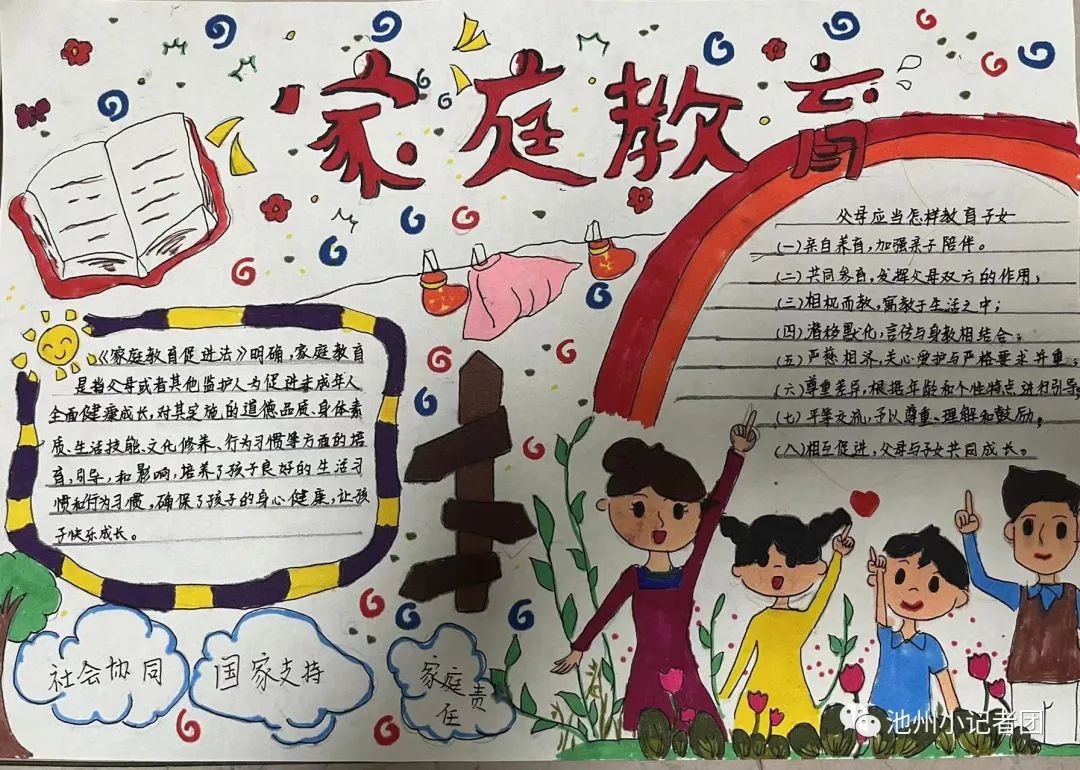 家庭教育
《家庭教育促进法》明确,家庭教育
是指父母或者其他监护人为促进未成年人
全面健康成长,对其实施的道德品质、身体素
质、生活技能、文化修养、行为习惯等方面的培
育,引导,和影响,培养了孩子良好的生活习
惯和行为习惯,确保了孩子的身心健康,让孩
子快乐成长。
父母应当怎样教育子女
(一)亲自养育,加强亲子陪伴。
(二)共同参育,发挥父母双方的作用;
(三)相机而教,寓教于生活之中;
(四)潜移默化,言传与身教相结合;
(五)严慈相济,关心爱护与严格要求并重;
(六)尊重差异,根据年龄和个性特点进行引导;
(七)平等交流,予以尊重、理解和鼓励。
(八)相互促进,父母与子女共同成长。
社会协同
国家支持
家庭责
任
池州小记者团